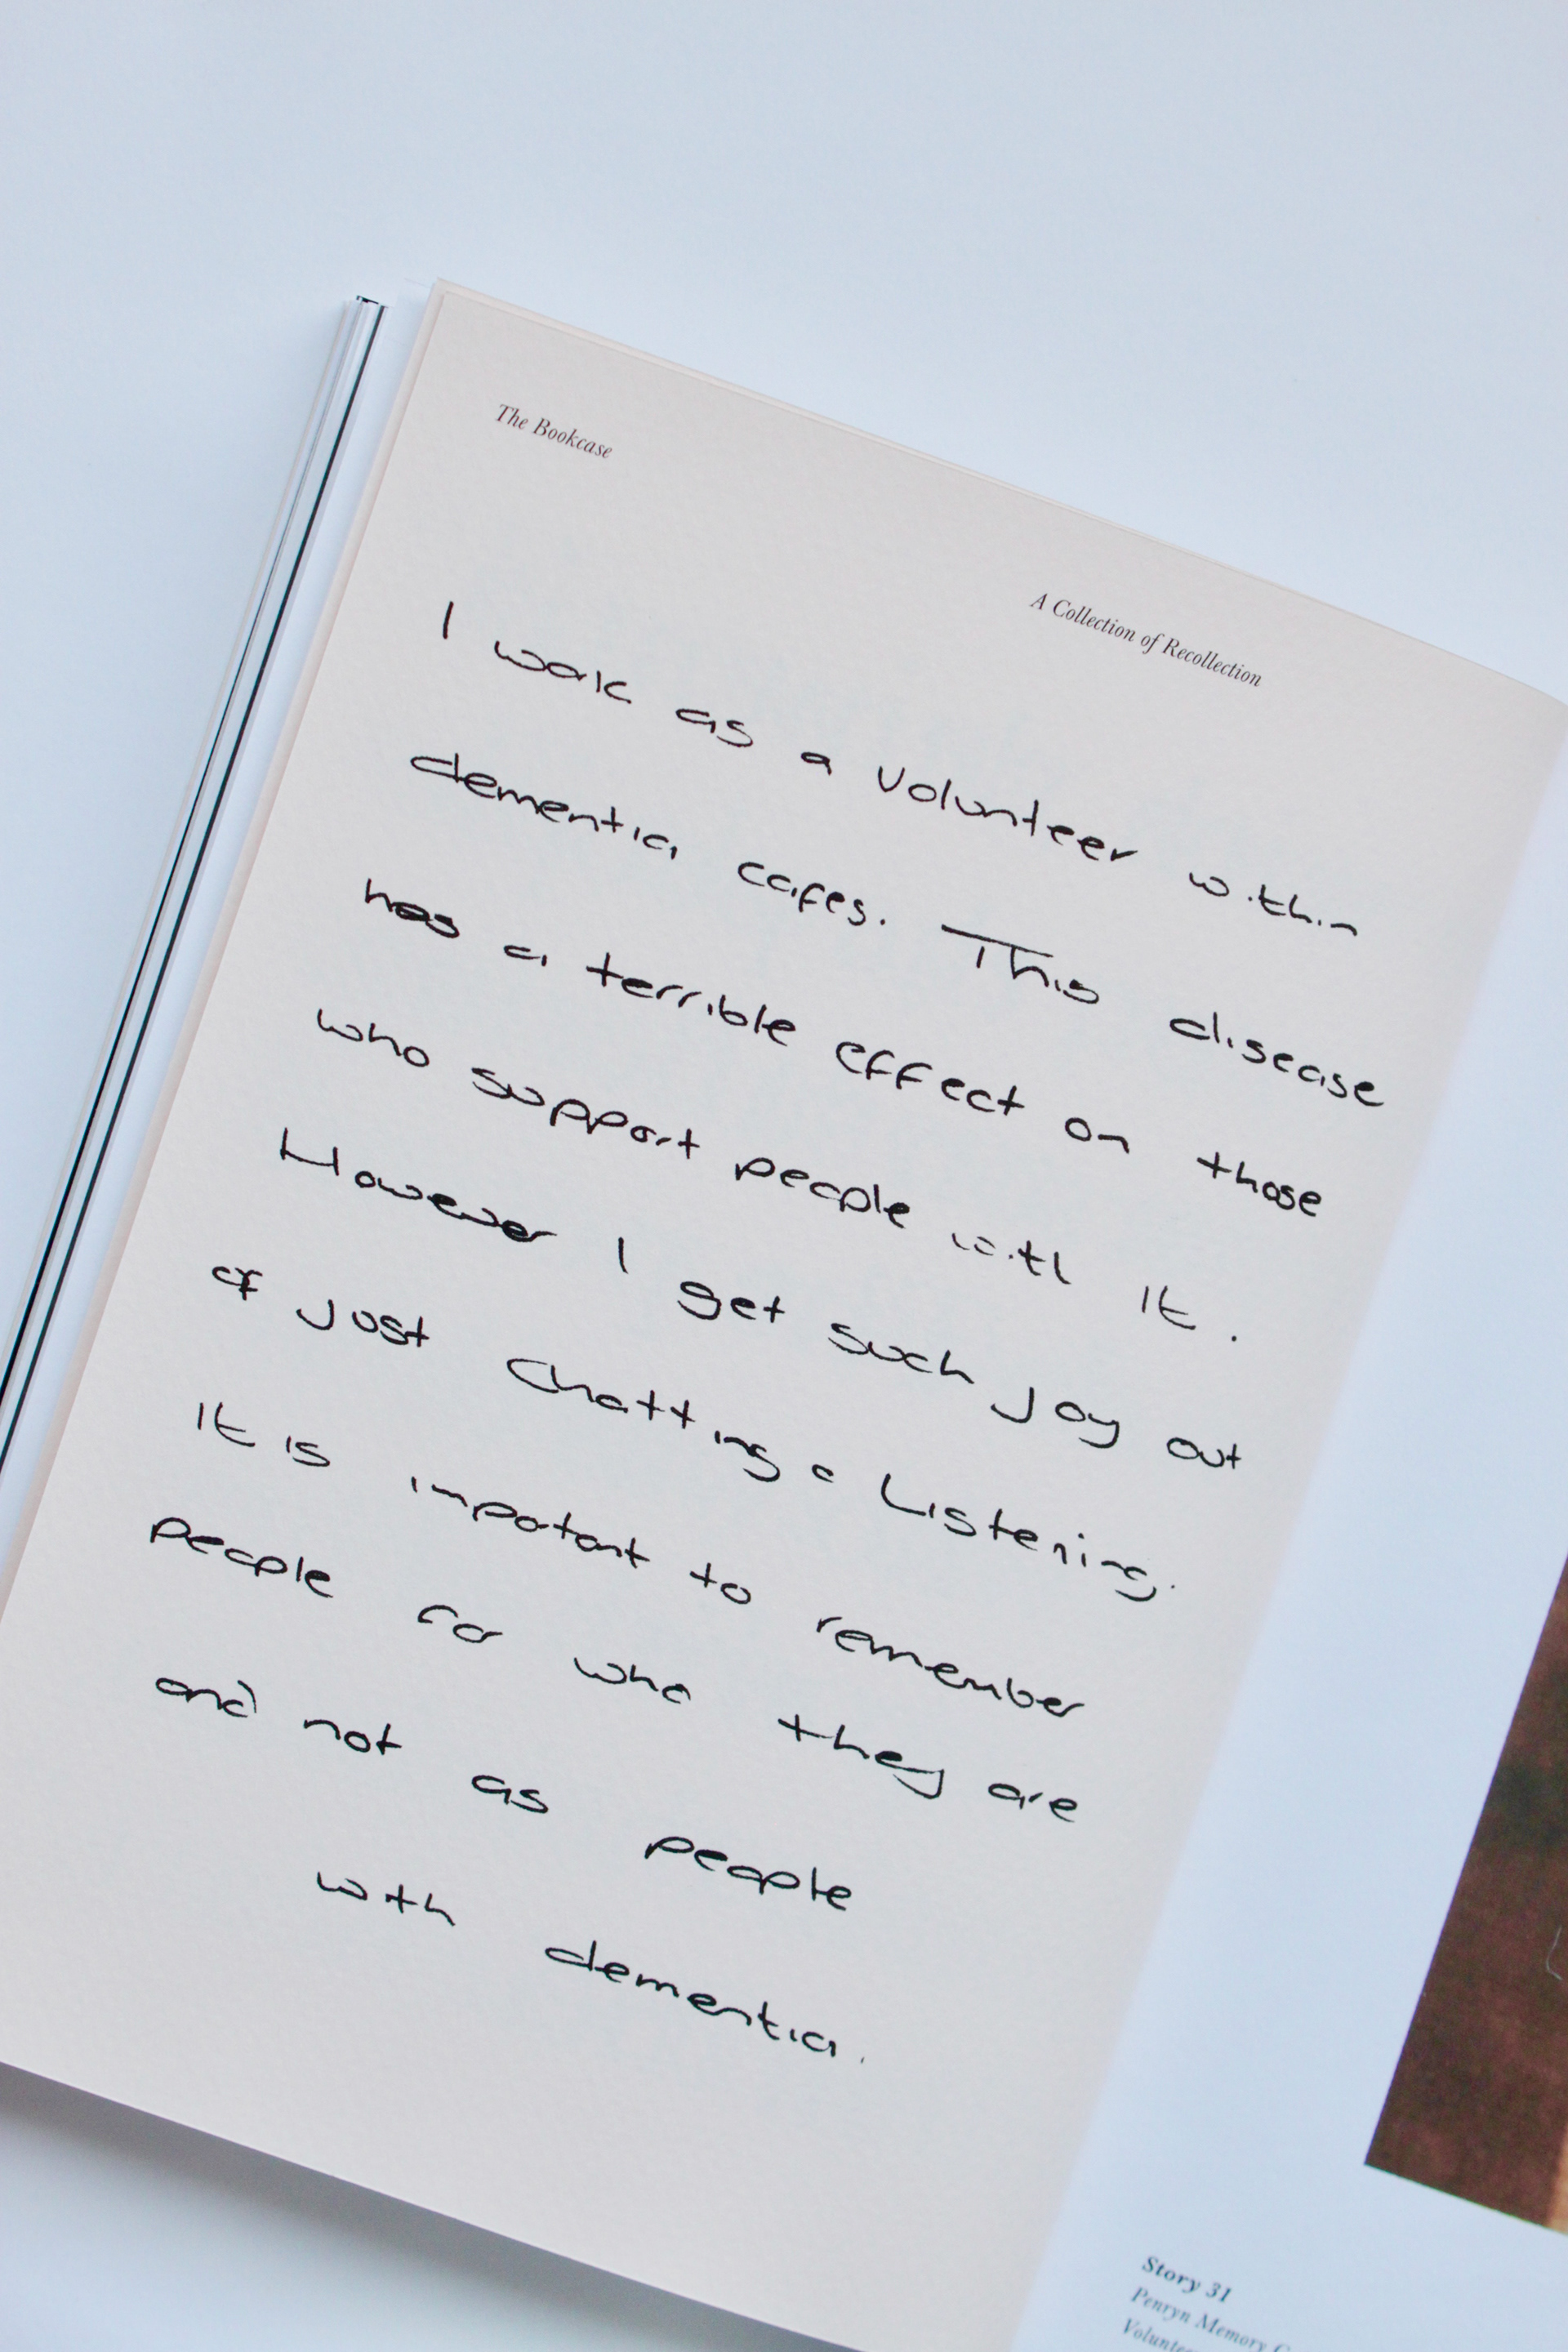 The Bookcase
A Collection of Recollection
I work as a volunteer within
dementia cafes. This disease
has a terrible effect on those
who support people with it.
However I get such joy out
of just chatting a Listening.
It is impotant to remember
people for who they are
and not as people
with dementia.
Story 31
Penryn Memory